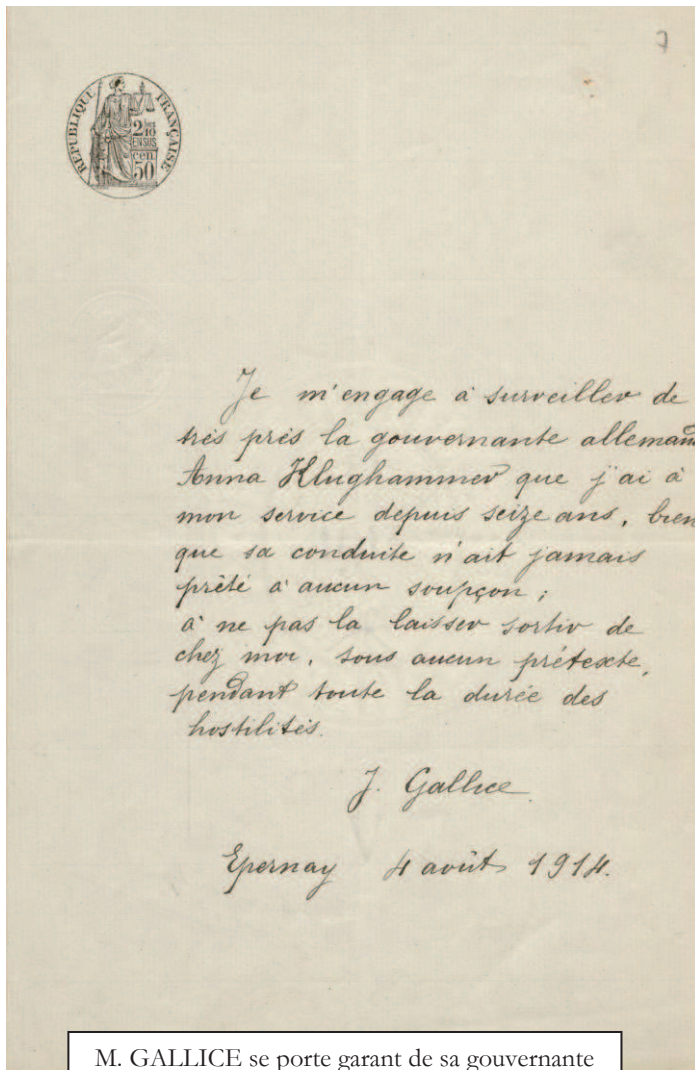 7
RÉPUBLIQUE FRANÇAISE
2/10
EN SUS
cen.
50
Je m'engage à surveiller de
très près la gouvernante allemand
Anna Klughammer que j'ai à
mon service depuis seize ans, bien
que sa conduite n'ait jamais
prêté à aucun soupçon ;
à ne pas la laisser sortir de
chez moi, sous aucun prétexte,
pendant toute la durée des
hostilités.
J. Gallice.
Epernay 4 août 1914.
M. GALLICE se porte garant de sa gouvernante